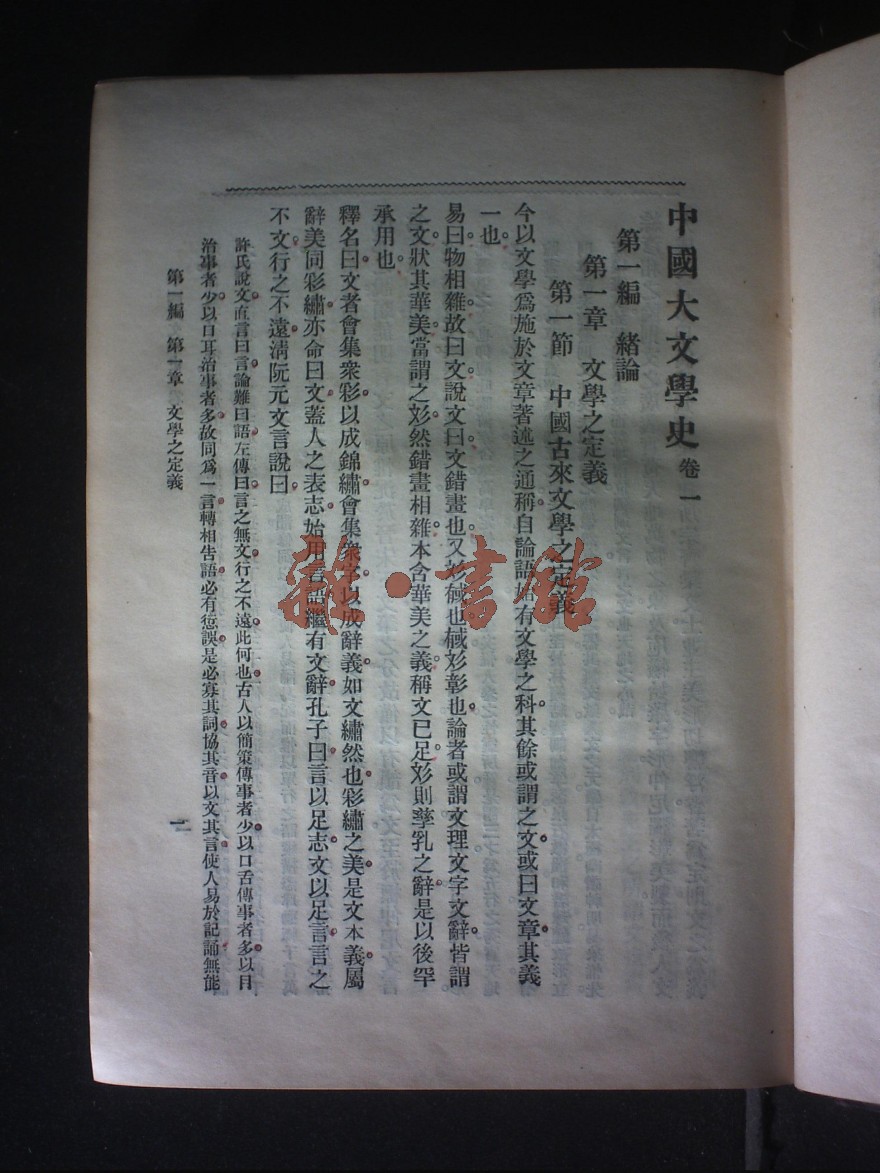 中國大文學史卷一
第一編　緒論
第一章　文學之定義
第一節　中國古來文學之定義
今以文學爲施於文章著述之通稱。自論語始有文學之科。其餘或謂之文。或曰文章。其義
一也。
易曰。物相雜。故曰文。說文曰。文錯畫也。又彣𢒉也。𢒉彣彰也。論者或謂文理文字文辭皆謂
之文。狀其華美當謂之彣。然錯畫相雜。本含華美之義。稱文已足。彣則孳乳之辭。是以後罕
承用也。
釋名曰。文者會集衆彩以成錦繡。會集衆字以成辭義。如文繡然也。彩繡之美。是文本義。屬
辭美同彩繡。亦命曰文。蓋人之表志。始用言語。繼有文辭。孔子曰。言以足志。文以足言。言之
不文。行之不遠。淸阮元文言說曰。
許氏說文。直言曰言。論難曰語。左傳曰。言之無文。行之不遠。此何也。古人以簡策傳事者少。以口舌傳事者多。以目
治事者少。以口耳治事者多。故同爲一言。轉相告語。必有愆誤。是必寡其詞。協其音。以文其言。使人易於記誦。無能
第一編　第一章　文學之定義
一
雜·書館